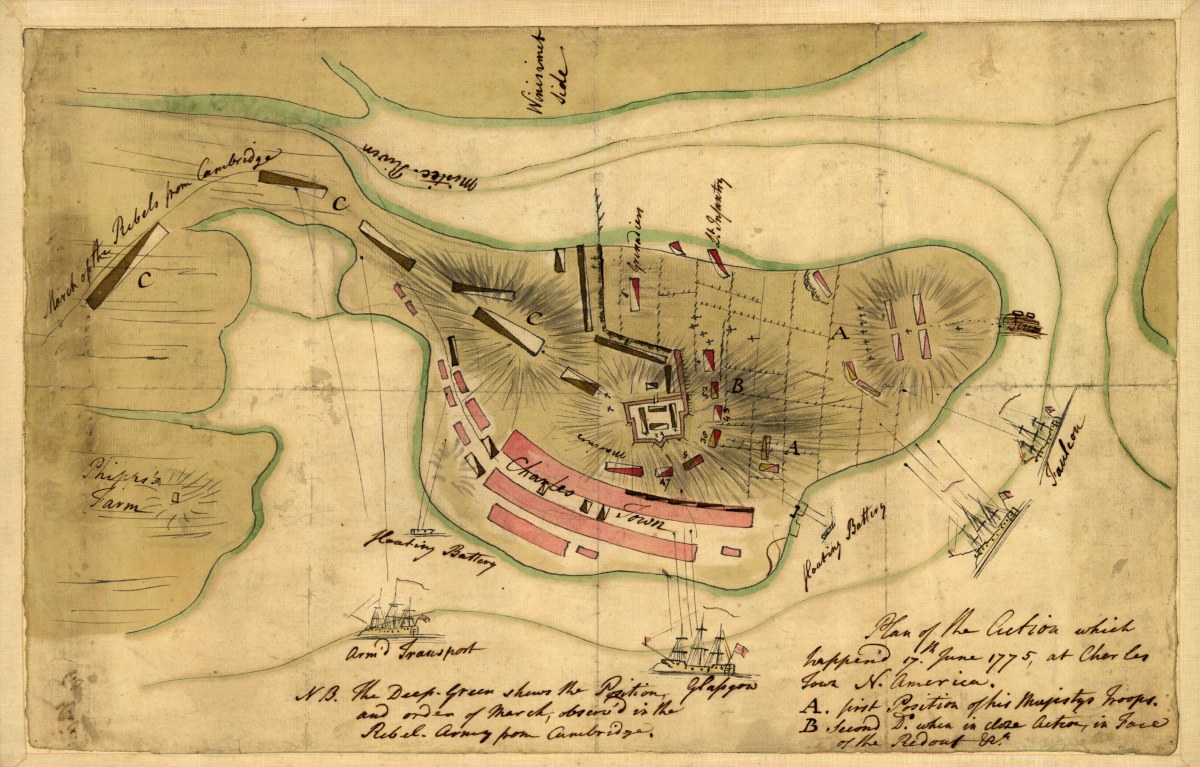 Winisimet
Side
Mistic River
March of the Rebels from Cambridge
C
C
C
Grenadiers
Lt. Infantry
A
B
52
43
38
5
47
A
Marines
Charles Town
Phipps's
Farm
floating Battery
floating Battery
Faulcon
Arm'd Transport
Glasgow
N.B. The Deep-Green shews the Position,
and order of March, observ'd in the
Rebel Army from Cambridge.
Plan of the Action which
happen'd 17th. June 1775, at Charles
Town N. America.
A. first Position of his Majestys Troops.
B Second Do. when in close Action, in Face
of the Redout &c.